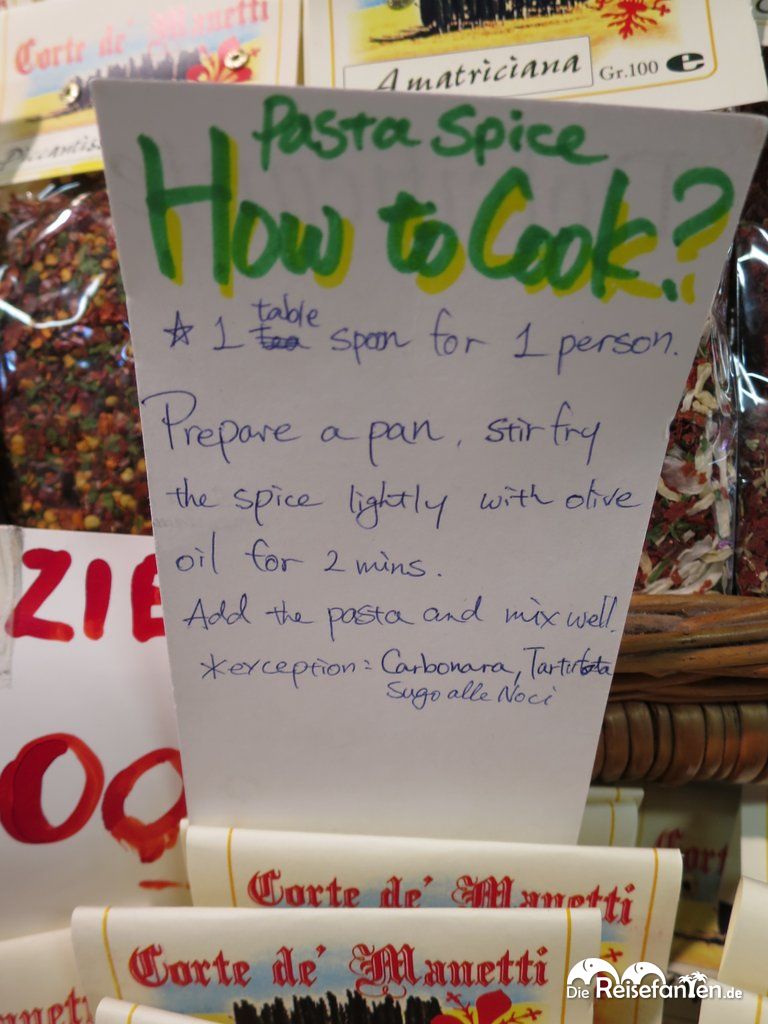 Corte de' Manetti
Amatriciana Gr.100 e
Pasta Spice
How to Cook?
☆ 1 table spon for 1 person.
Prepare a pan, stir fry
the spice lightly with olive
oil for 2 mins.
Add the pasta and mix well!
*exception: Carbonara,
Sugo alle Noci
ZIE
00
Corte de' Manetti
Corte de' Manetti
Die Reisefanten.de